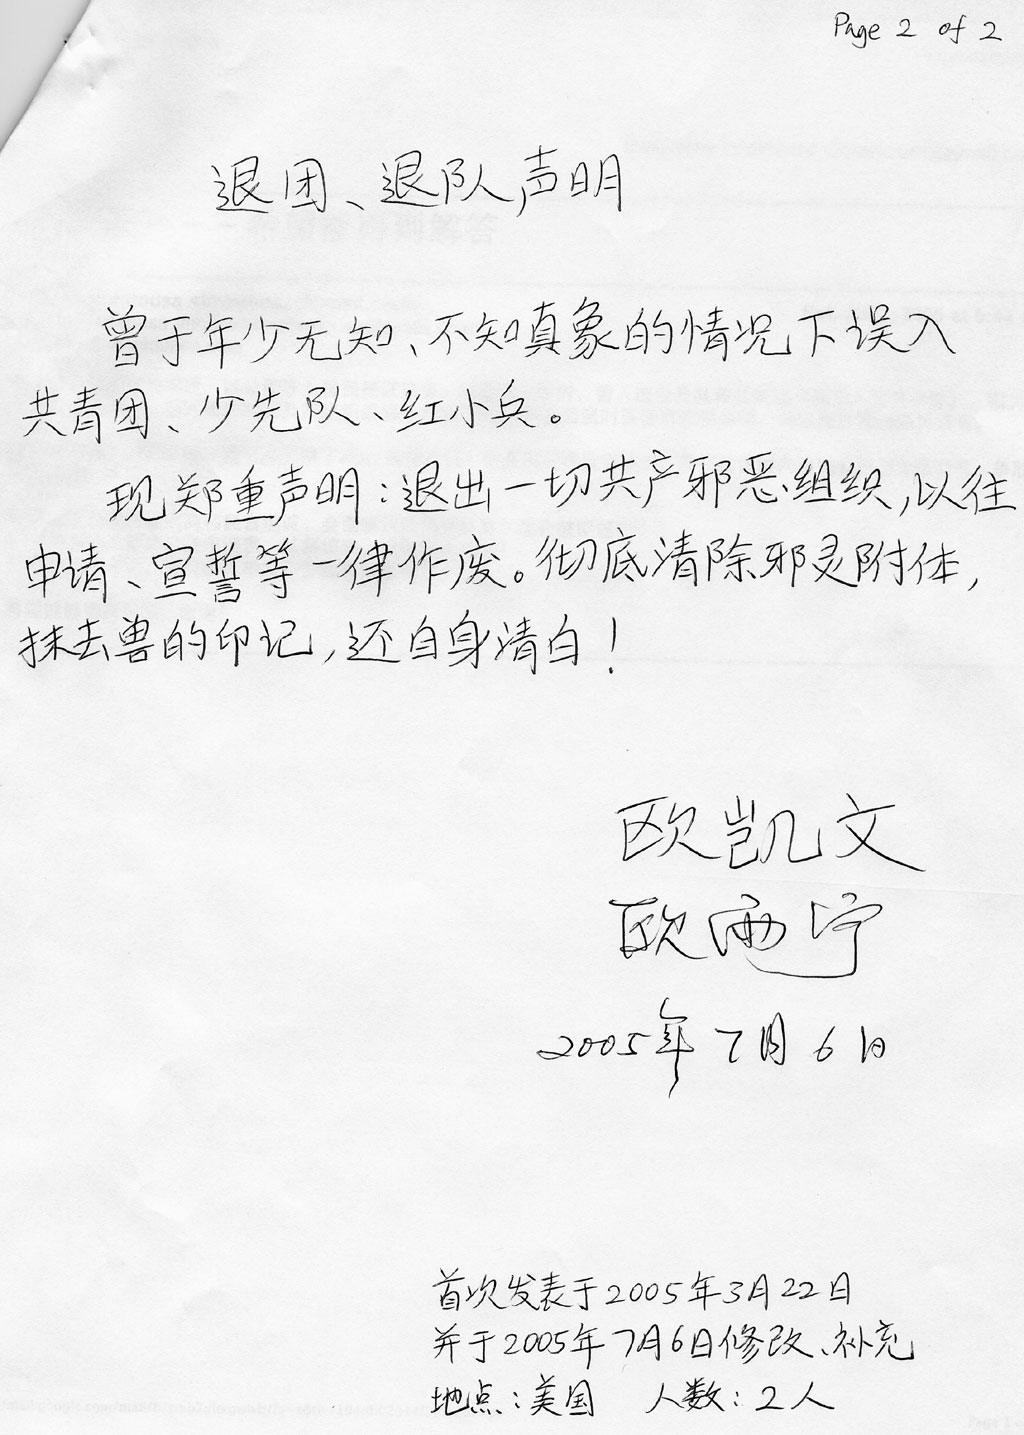 Page 2 of 2
退团、退队声明
曾于年少无知、不知真象的情况下误入
共青团、少先队、红小兵。
现郑重声明:退出一切共产邪恶组织,以往
申请、宣誓等一律作废。彻底清除邪灵附体,
抹去兽的印记,还自身清白!
欧凯文
欧雨宁
2005年7月6日
首次发表于2005年3月22日
并于2005年7月6日修改、补充
地点:美国 人数:2人